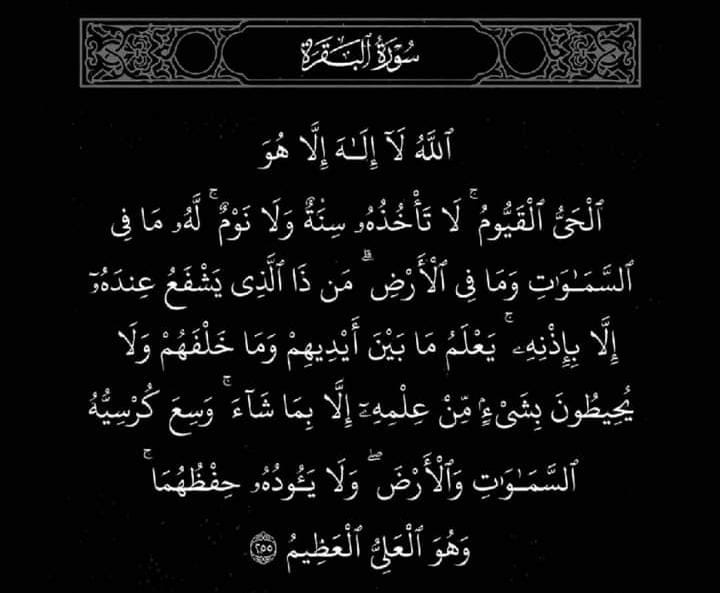 سُورَةُ ٱلْبَقَرَةِ
ٱللَّهُ لَآ إِلَـٰهَ إِلَّا هُوَ
ٱلْحَىُّ ٱلْقَيُّومُ ۚ لَا تَأْخُذُهُۥ سِنَةٌ وَلَا نَوْمٌ ۚ لَّهُۥ مَا فِى
ٱلسَّمَـٰوَٰتِ وَمَا فِى ٱلْأَرْضِ ۗ مَن ذَا ٱلَّذِى يَشْفَعُ عِندَهُۥٓ
إِلَّا بِإِذْنِهِۦ ۚ يَعْلَمُ مَا بَيْنَ أَيْدِيهِمْ وَمَا خَلْفَهُمْ وَلَا
يُحِيطُونَ بِشَىْءٍ مِّنْ عِلْمِهِۦٓ إِلَّا بِمَا شَآءَ ۚ وَسِعَ كُرْسِيُّهُ
ٱلسَّمَـٰوَٰتِ وَٱلْأَرْضَ ۖ وَلَا يَـُٔودُهُۥ حِفْظُهُمَا ۚ
وَهُوَ ٱلْعَلِىُّ ٱلْعَظِيمُ ٢٥٥